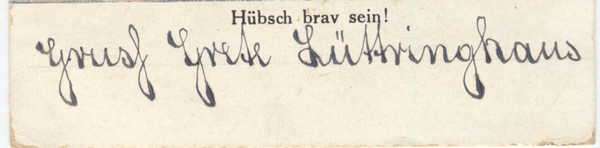 Hübsch brav sein!
Gruß Grete Lüttringhaus